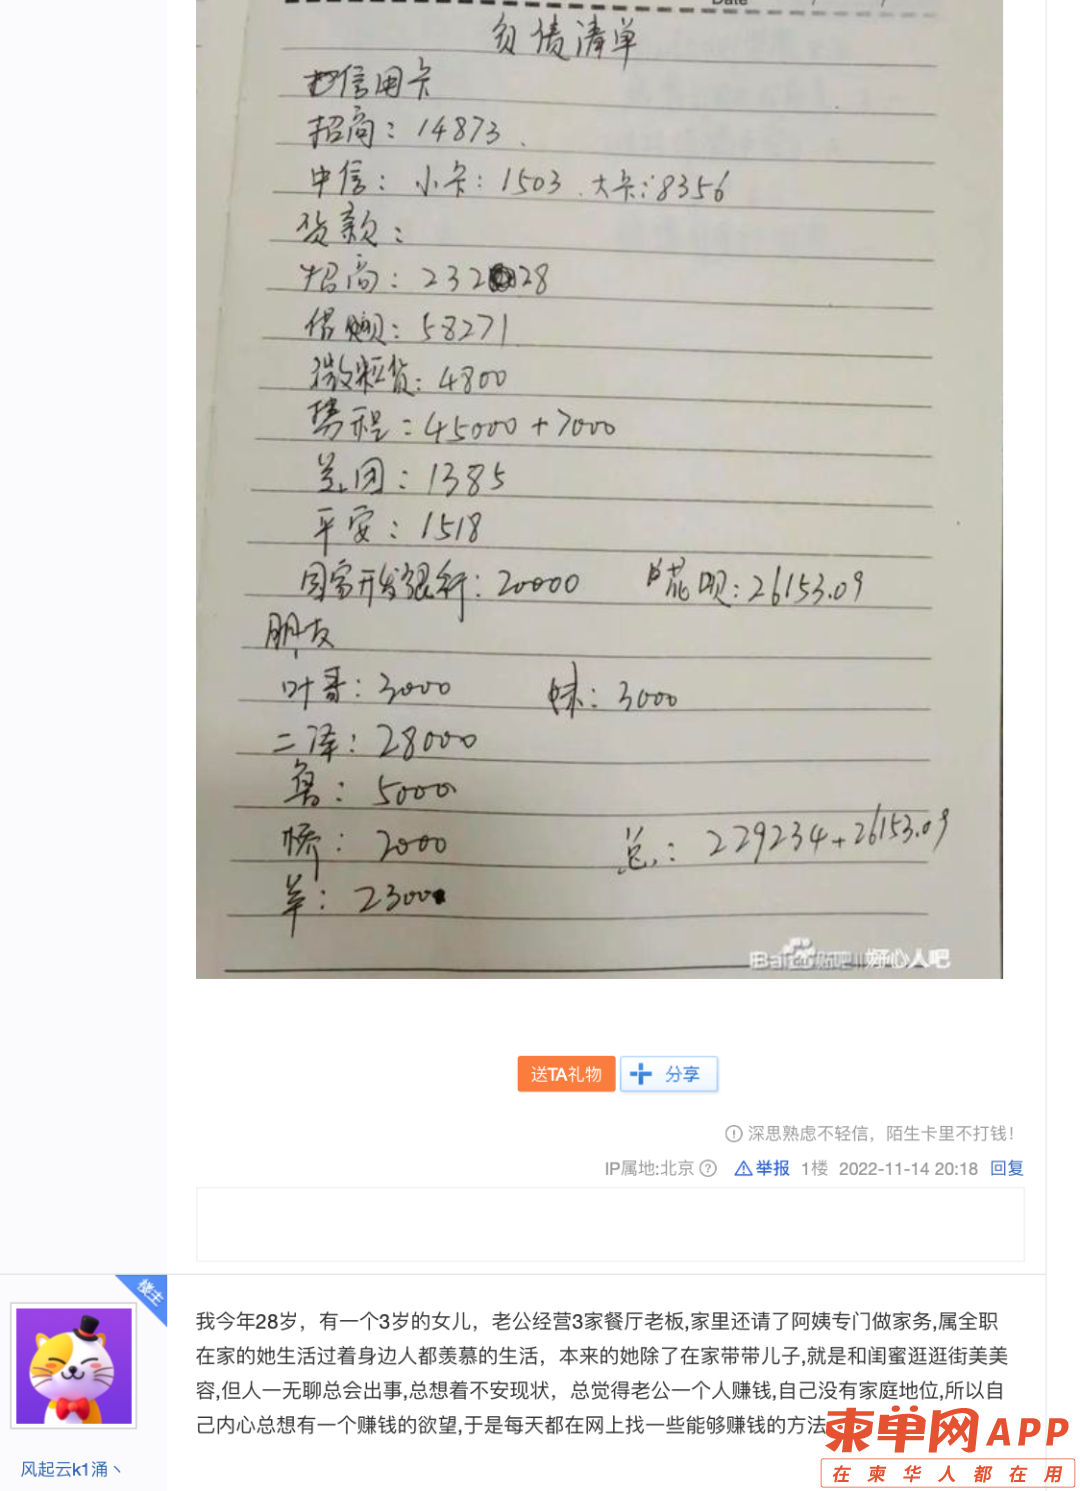 Date
负债清单
信用卡
招商：14873
中信：小卡：1503 大卡：8356
货款：
招商：232 28
借呗：58271
微粒货：4800
携程：45000+7000
美团：1385
平安：1518
国家开发银行：20000 花呗：26153.09
朋友
叶哥：3000 妹：3000
二泽：28000
鲁：5000
桥：2000 总：229234+26153.09
羊：2300
Bai 贴吧 好心人吧
送TA礼物 分享
深思熟虑不轻信，陌生卡里不打钱！
IP属地:北京 举报 1楼 2022-11-14 20:18 回复
楼主
我今年28岁，有一个3岁的女儿，老公经营3家餐厅老板,家里还请了阿姨专门做家务,属全职
在家的她生活过着身边人都羡慕的生活，本来的她除了在家带带儿子,就是和闺蜜逛逛街美美
容,但人一无聊总会出事,总想着不安现状，总觉得老公一个人赚钱,自己没有家庭地位,所以自
己内心总想有一个赚钱的欲望,于是每天都在网上找一些能够赚钱的方法
风起云k1涌丶
柬单网APP
在柬华人都在用